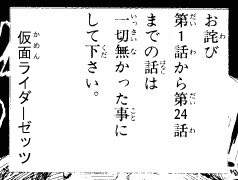 お詫び
第1話から第24話
までの話は
一切無かった事に
して下さい。
仮面ライダーゼッツ